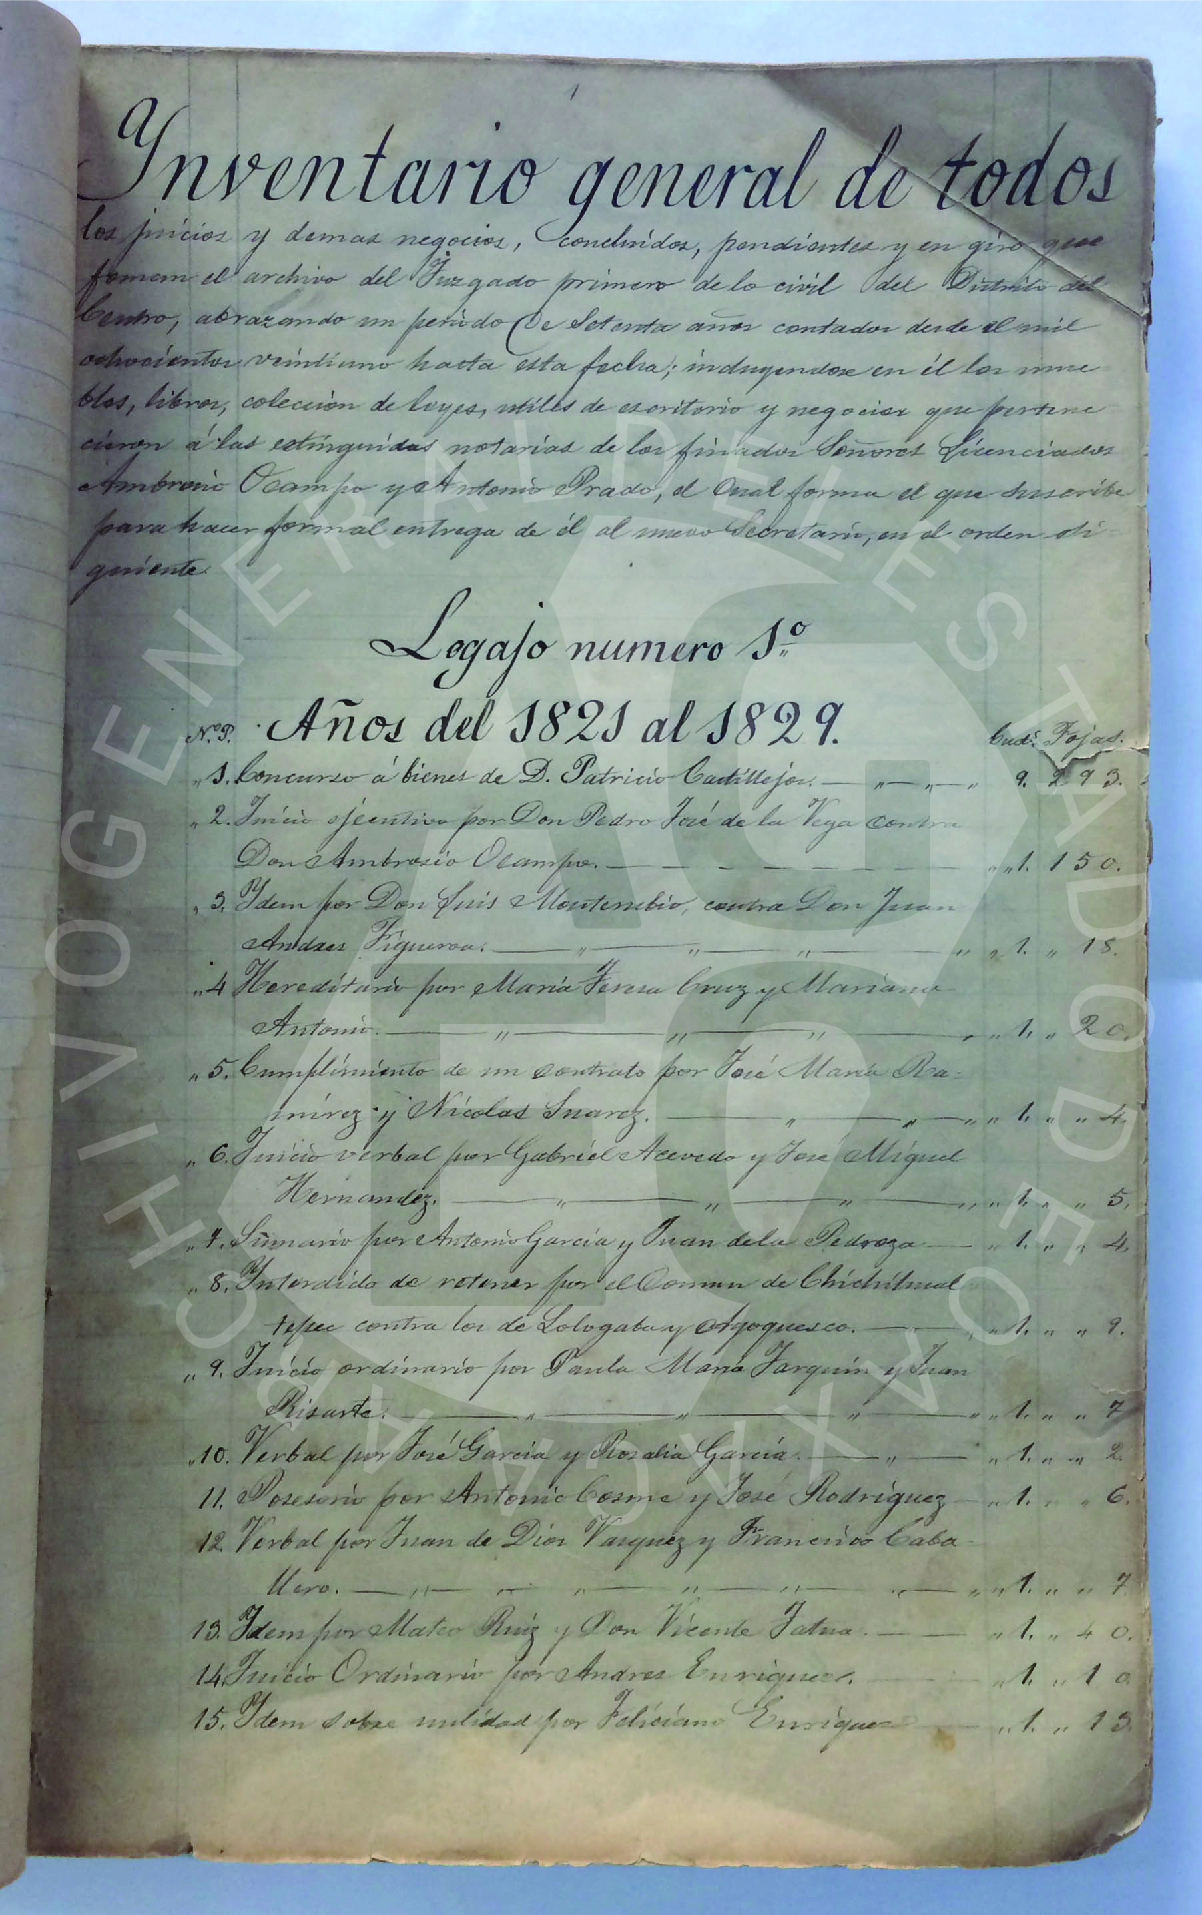 1
Ynventario general de todos
los juicios y demas negocios, concluidos, pendientes y en giro que
forman el archivo del Juzgado primero de lo civil del Distrito del
Centro, abrazando un periodo de setenta años contados desde el mil
ochocientos veintiuno hasta esta fecha; incluyendose en él los mue-
bles, libros, coleccion de leyes, utiles de escritorio y negocios que pertene-
cieron á las estinguidas notarias de los finados Señores Licenciados
Ambrosio Ocampo y Antonio Prado, el cual forma el que suscribe
para hacer formal entrega de él al nuevo Secretario, en el orden si-
guiente.
Legajo numero 1º
Nos. Años del 1821 al 1829. Cuds. Fojas.
" 1. Concurso á bienes de D. Patricio Castillejos. — " — " — " 9. 293.
" 2. Juicio ejecutivo por Don Pedro José de la Vega contra
Don Ambrosio Ocampo. — — — — — — " "1. 150.
" 3. Ydem por Don Luis Monterubio, contra Don Juan
Andres Figueroa. — " — " — " — " "1. " 18.
" 4 Hereditario por Maria Teresa Cruz y Mariano
Antonio. — " — " — " — " "1. " 20.
" 5. Cumplimiento de un contrato por José Maria Ra-
mirez y Nicolas Suarez. — " — " — " "1. " " 4.
" 6. Juicio verbal por Gabriel Acevedo y José Miguel
Hernandez. — " — " — " — " "1. " " 5.
" 7. Sumario por Antonio Garcia y Juan de la Pedroza — "1. " " 4.
" 8. Interdicto de retener por el Comun de Chichilmal-
tepec contra los de Sologaba y Ozoquesco. — " "1. " " 9.
" 9. Juicio ordinario por Paula Maria Jarquin y Juan
Risarte. — " — " — " — " "1. " " 7
" 10. Verbal por José Garcia y Rosalia Garcia. — " — "1. " " 2.
11. Posesorio por Antonio Cosme y José Rodriguez — "1. " " 6.
12. Verbal por Juan de Dios Vasquez y Francisco Caba-
llero. — " — " — " — " — " — " — " "1. " " 7
13. Ydem por Mateo Ruiz y Don Vicente — "1. " 40.
14. Juicio Ordinario por Andres Enriquez. — "1. " 10
15. Ydem sobre nulidad por Feliciano Enriquez — "1. " 13.
ARCHIVO GENERAL DEL ESTADO DE OAXACA